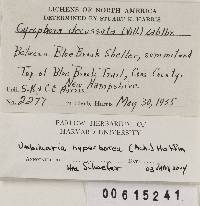 LICHENS OF NORTH AMERICA
DETERMINED BY STUART K. HARRIS
Gyrophora decussata (Vill.) Zahlbr.
Between Blue Brook Shelter, summit and
Top of Blue Brook Trail, Coos County,
New Hampshire.
Coll. S.K. & C.E. Harris
No. 2277 in Herb. Harris May 30, 1955
FARLOW HERBARIUM OF
HARVARD UNIVERSITY
Umbilicaria hyperborea (Ach.) Hoffm
Hta Schaefer
00615241